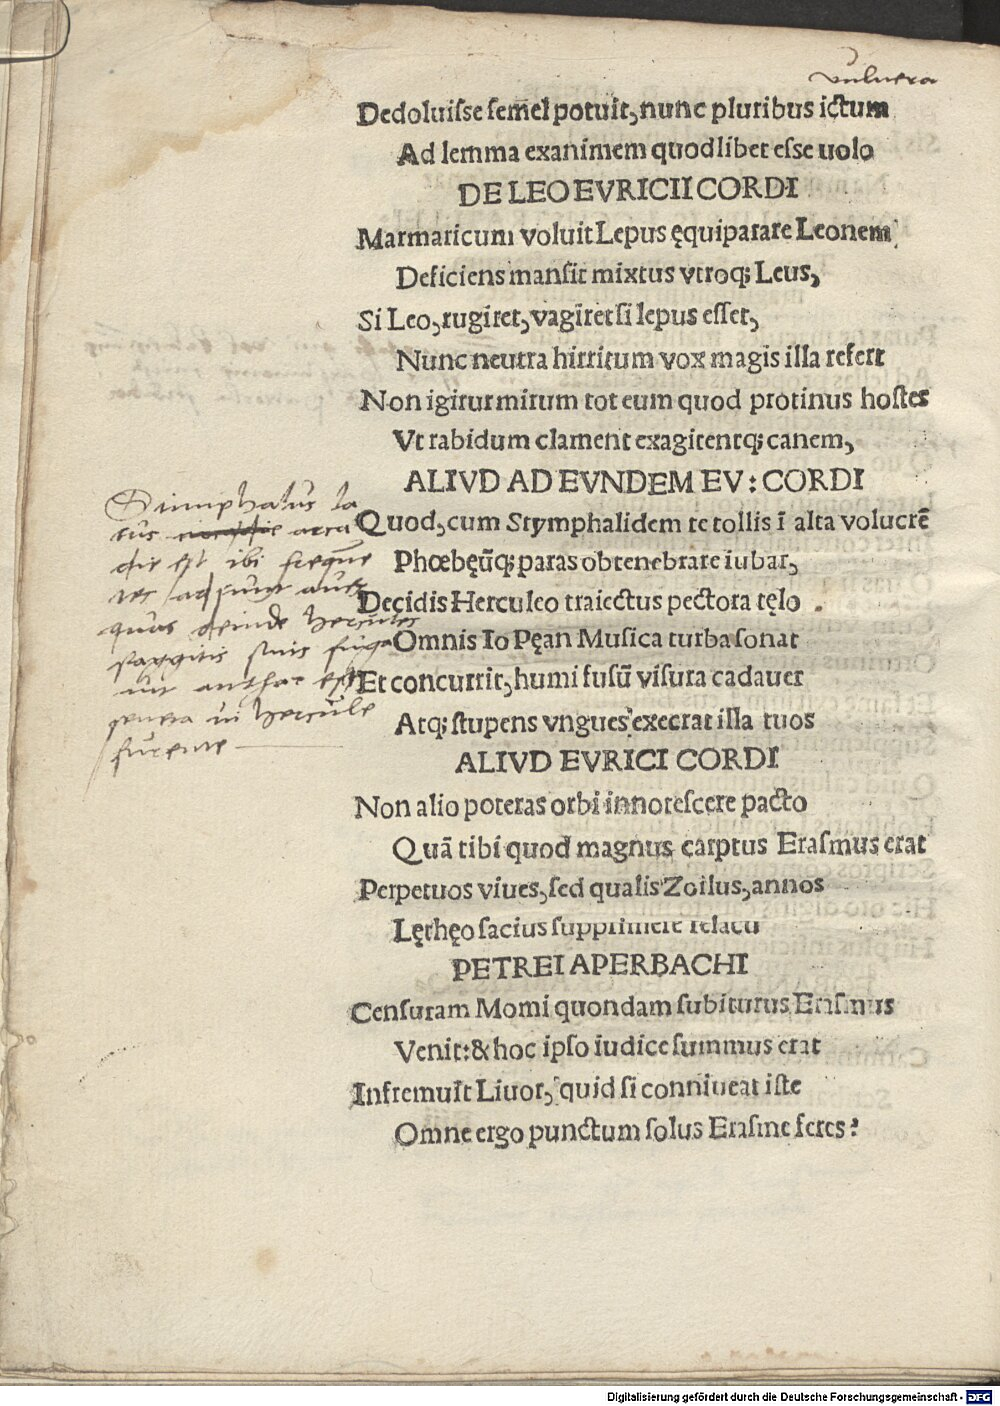 vulnera
Dedoluiſse ſemel potuit, nunc pluribus ictum
Ad lemma exanimem quodlibet eſse uolo
DE LEO EVRICII CORDI
Marmaricum voluit Lepus ęquiparare Leonem
Deficiens manſit mixtus vtroq; Leus,
Si Leo, rugīret, vagīret ſi lepus eſſet,
Nunc neutra hirritum vox magis illa refert
Non igitur mirum tot eum quod protinus hoſtes
Vt rabidum clament exagitentq; canem,
ALIVD AD EVNDEM EV: CORDI
Quod, cum Stymphalidem te tollis ī alta volucrē
Phœbęūq; paras obtenebrare iubar,
Decidis Herculeo traiectus pectora tęlo .
Omnis Io Pęan Muſica turba ſonat
Et concurrit, humi fuſū viſura cadauer
Atq; ſtupens vngues execrat illa tuos
Stimphalus la
cus arca
die est ibi freque͞
tes aves
quas deinde hercules
saggitis suis fuga
vit
genera in hercule
furente
ALIVD EVRICI CORDI
Non alio poteras orbi innoteſcere pacto
Quā tibi quod magnus carptus Eraſmus erat
Perpetuos viues, ſed qualis Zoilus, annos
Lęthęo ſacius ſupprimere relatu
PETREI APERBACHI
Cenſuram Momi quondam ſubiturus Eraſmus
Venit: & hoc ipſo iudice ſummus erat
Infremuīt Liuor, quid ſi conniueat iſte
Omne ergo punctum ſolus Eraſme feres?
Digitalisierung gefördert durch die Deutsche Forschungsgemeinschaft - DFG